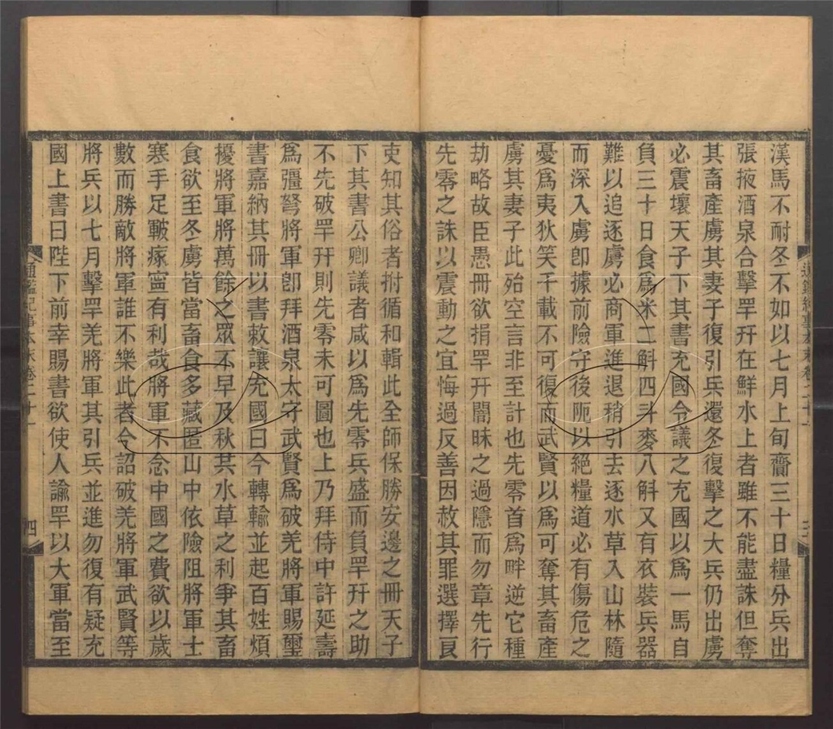 漢馬不耐冬不如以七月上旬齎三十日糧分兵出
張掖酒泉合擊罕幵在鮮水上者雖不能盡誅但奪
其畜產虜其妻子復引兵還冬復擊之大兵仍出虜
必震壞天子下其書充國令議之充國以爲一馬自
負三十日食爲米二斛四斗麥八斛又有衣裝兵器
難以追逐虜必商軍進退稍引去逐水草入山林隨
而深入虜卽據前險守後阨以絕糧道必有傷危之
憂爲夷狄笑千載不可復而武賢以爲可奪其畜產
虜其妻子此殆空言非至計也先零首爲畔逆它種
劫略故臣愚冊欲捐罕幵闇昧之過隱而勿章先行
先零之誅以震動之宜悔過反善因赦其罪選擇良
通鑑紀事本末卷二十一 三
吏知其俗者拊循和輯此全師保勝安邊之冊天子
下其書公卿議者咸以爲先零兵盛而負罕幵之助
不先破罕幵則先零未可圖也上乃拜侍中許延壽
爲彊弩將軍卽拜酒泉太守武賢爲破羌將軍賜璽
書嘉納其冊以書敕讓充國曰今轉輸並起百姓煩
擾將軍將萬餘之眾不早及秋共水草之利爭其畜
食欲至冬虜皆當畜食多藏匿山中依險阻將軍士
寒手足皸瘃寧有利哉將軍不念中國之費欲以歲
數而勝敵將軍誰不樂此者今詔破羌將軍武賢等
將兵以七月擊罕羌將軍其引兵並進勿復有疑充
國上書曰陛下前幸賜書欲使人諭罕以大軍當至
通鑑紀事本末卷二十一 四